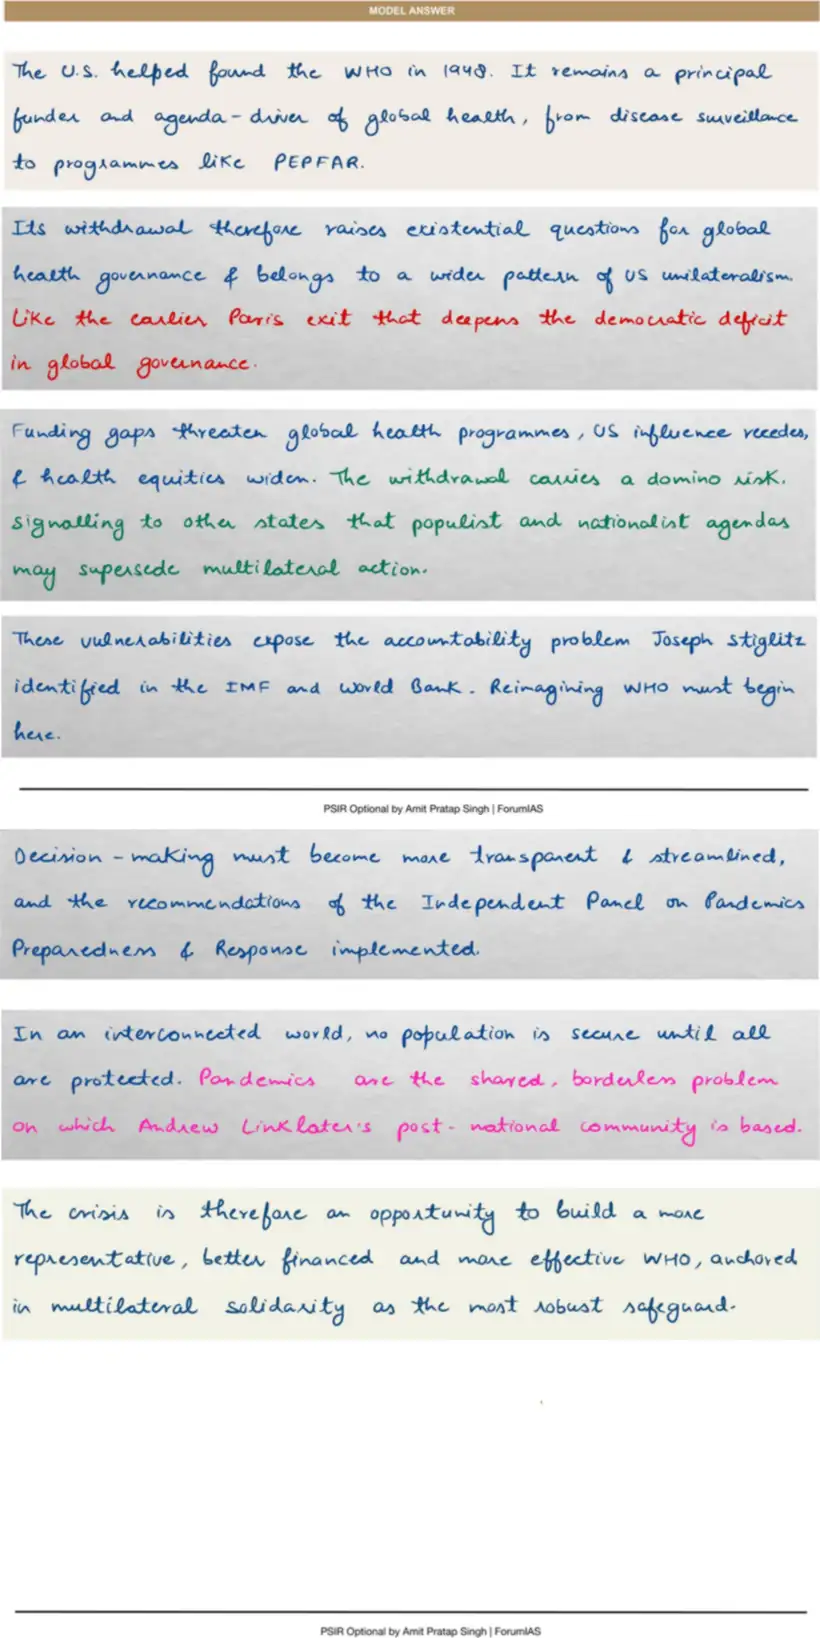 MODEL ANSWER
The U.S. helped found the WHO in 1948. It remains a principal
funder and agenda-driver of global health, from disease surveillance
to programmes like PEPFAR.
Its withdrawal therefore raises existential questions for global
health governance & belongs to a wider pattern of US unilateralism.
Like the earlier Paris exit that deepens the democratic deficit
in global governance.
Funding gaps threaten global health programmes, US influence recedes,
& health equities widen. The withdrawal carries a domino risk.
signalling to other states that populist and nationalist agendas
may supersede multilateral action.
These vulnerabilities expose the accountability problem Joseph Stiglitz
identified in the IMF and World Bank. Reimagining WHO must begin
here.
PSIR Optional by Amit Pratap Singh | ForumIAS
Decision-making must become more transparent & streamlined,
and the recommendations of the Independent Panel on Pandemics
Preparedness & Response implemented.
In an interconnected world, no population is secure until all
are protected. Pandemics are the shared, borderless problem
on which Andrew Linklater's post-national community is based.
The crisis is therefore an opportunity to build a more
representative, better financed and more effective WHO, anchored
in multilateral solidarity as the most robust safeguard.
PSIR Optional by Amit Pratap Singh | ForumIAS